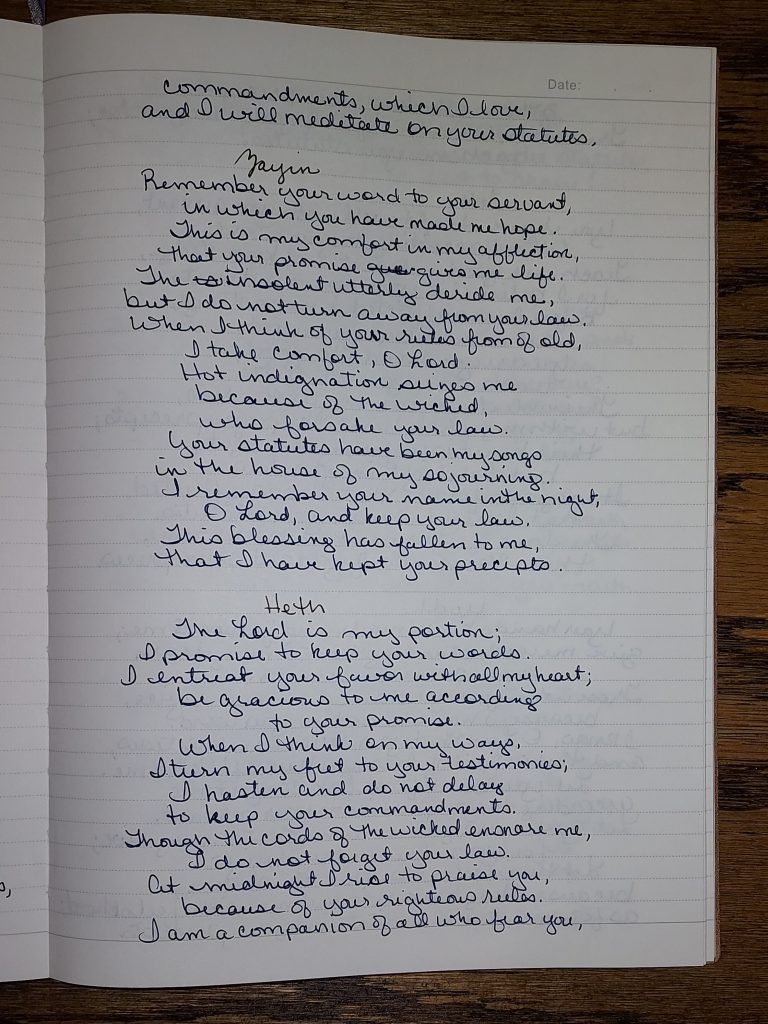 Date:
commandments, which I love,
and I will meditate on your statutes.
Zayin
Remember your word to your servant,
in which you have made me hope.
This is my comfort in my affliction,
that your promise gives me life.
The insolent utterly deride me,
but I do not turn away from your law.
When I think of your rules from of old,
I take comfort, O Lord.
Hot indignation seizes me
because of the wicked,
who forsake your law.
Your statutes have been my songs
in the house of my sojourning.
I remember your name in the night,
O Lord, and keep your law.
This blessing has fallen to me,
that I have kept your precepts.
Heth
The Lord is my portion;
I promise to keep your words.
I entreat your favor with all my heart;
be gracious to me according
to your promise.
When I think on my ways,
I turn my feet to your testimonies;
I hasten and do not delay
to keep your commandments.
Though the cords of the wicked ensnare me,
I do not forget your law.
At midnight I rise to praise you,
because of your righteous rules.
I am a companion of all who fear you,